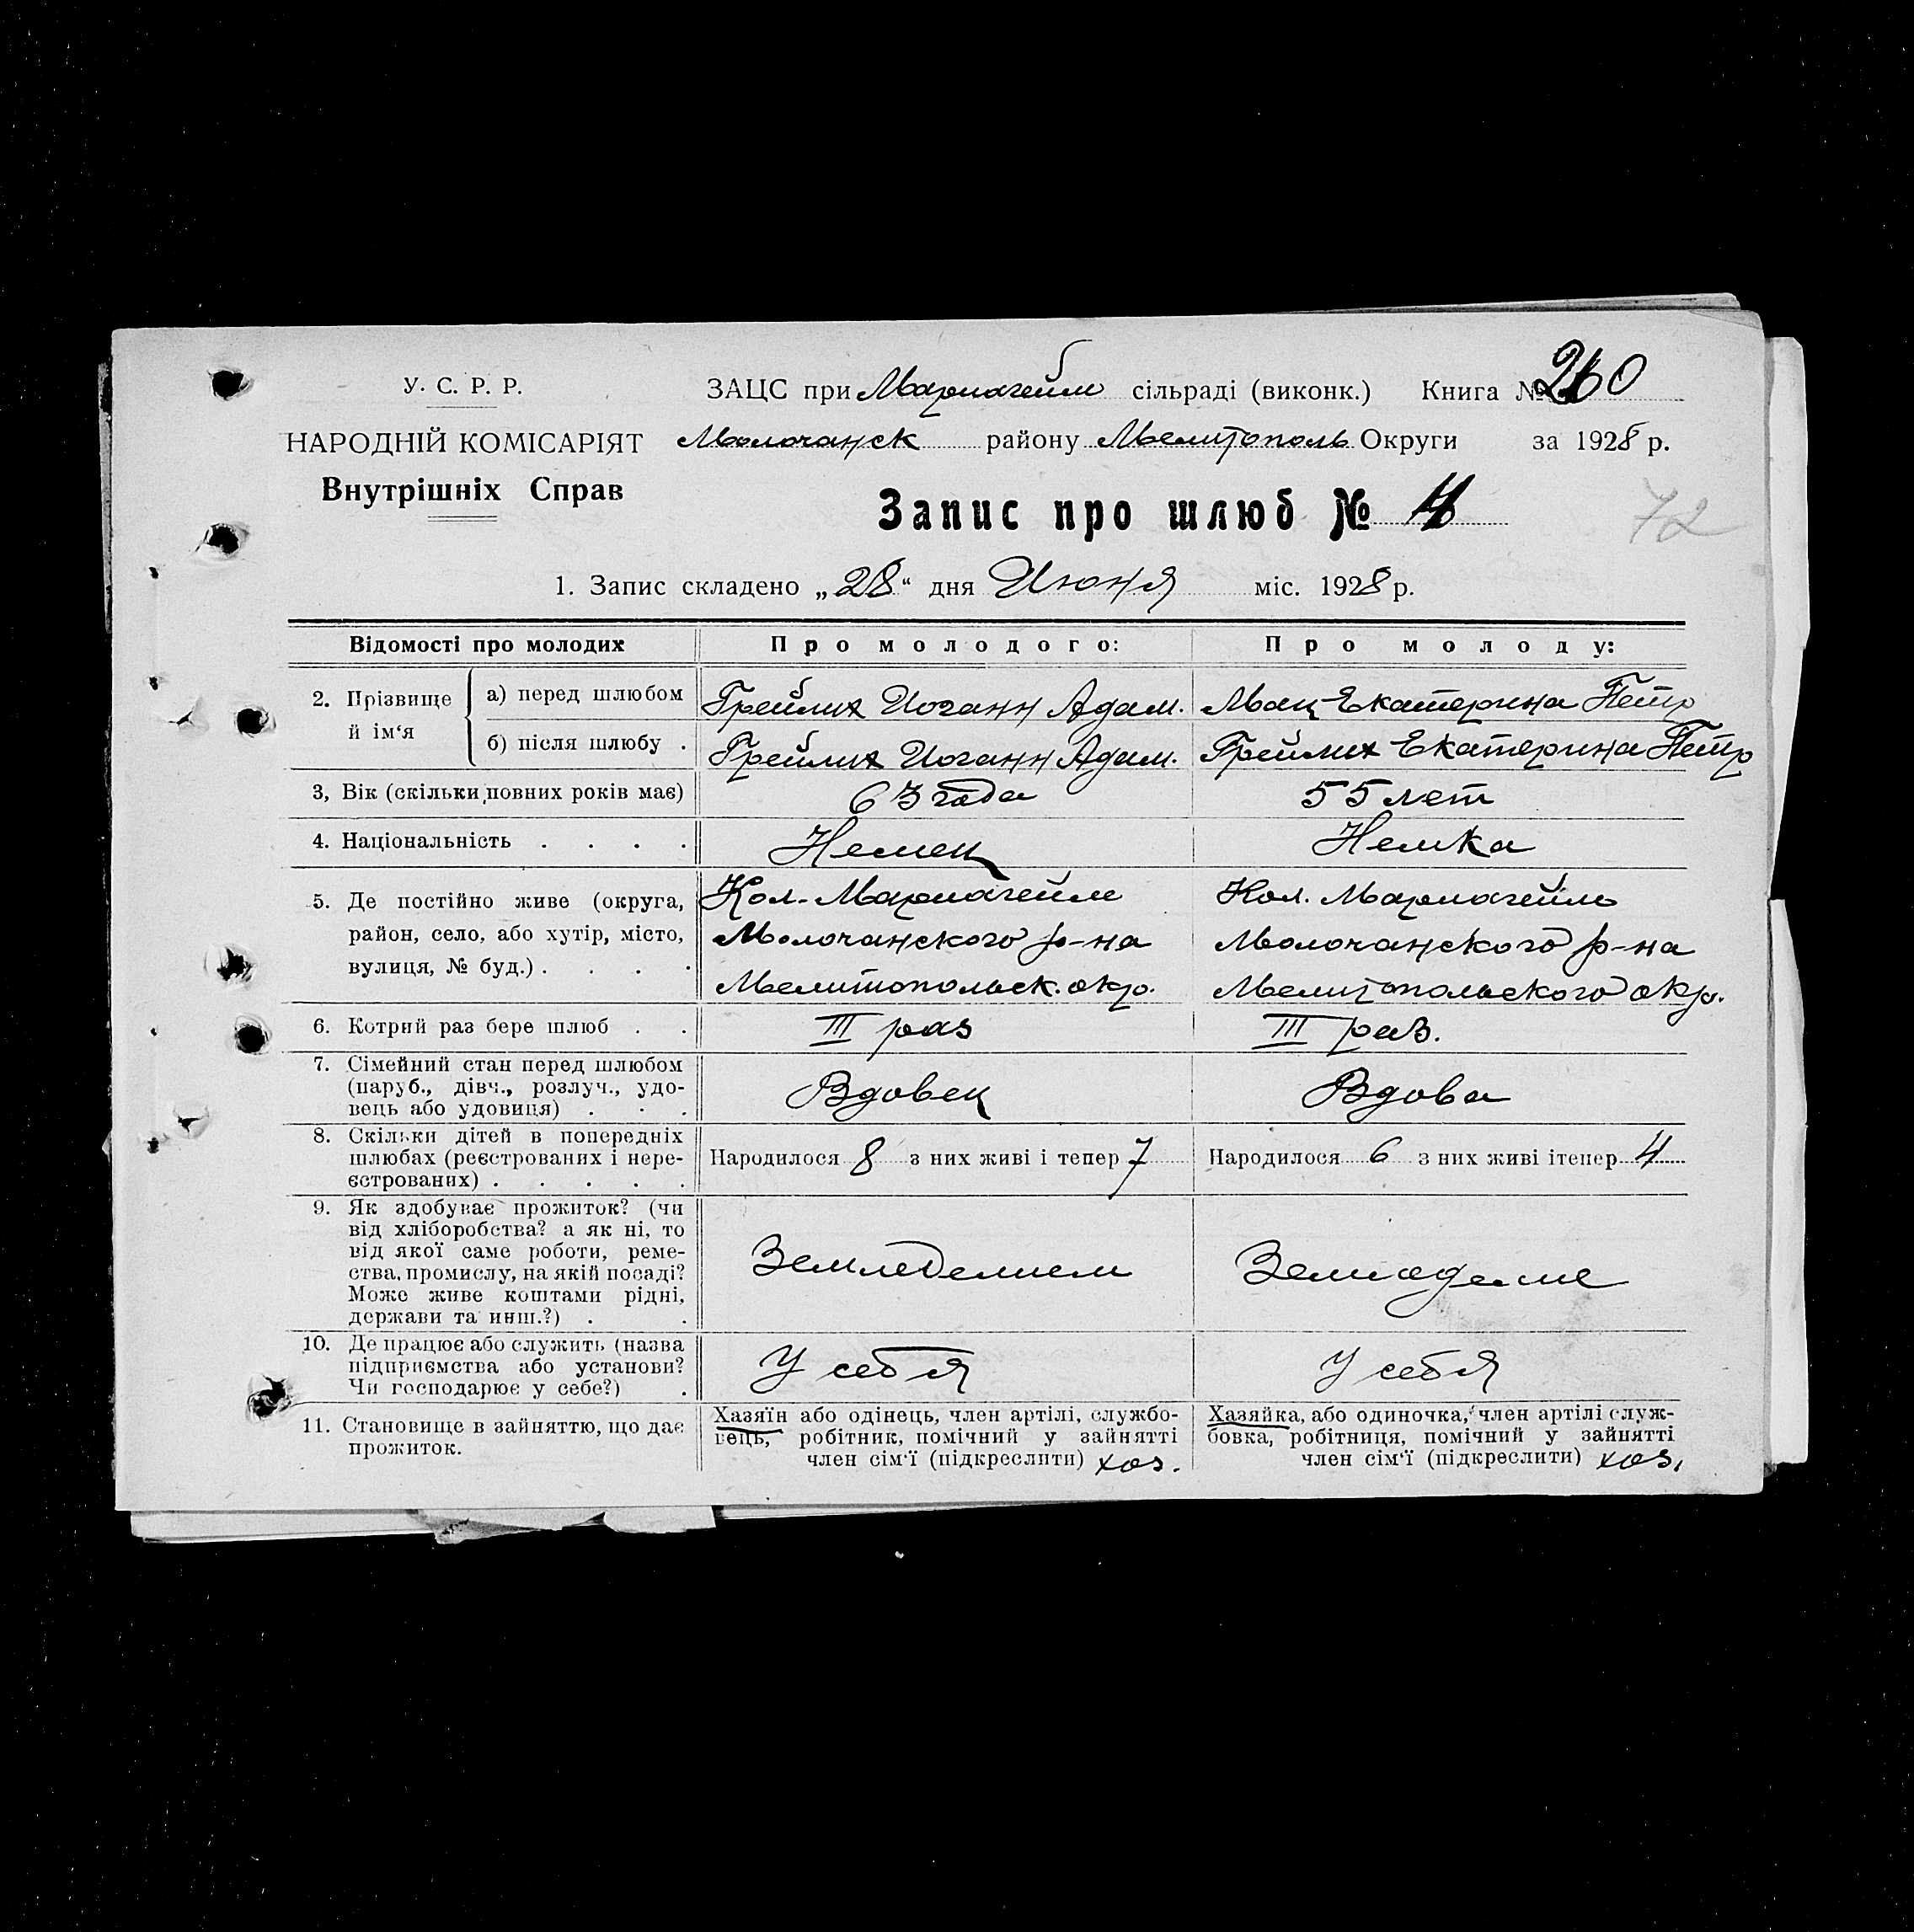 У. С. Р. Р.
НАРОДНІЙ КОМІСАРІЯТ
Внутрішніх Справ
ЗАЦС при Мариагейм сільраді (виконк.) Книга №
Молочанск району Мелитополь Округи за 1928 р.
Запис про шлюб № 4
72
1. Запис складено „28“ дня Июня міс. 1928 р.
Відомості про молодих Про молодого: Про молоду:
2. Прізвище й ім‘я
а) перед шлюбом Грейлих Иоганн Адам. Мац Екатерина Петр
б) після шлюбу . Грейлих Иоганн Адам. Грейлих Екатерина Петр
3, Вік (скільки повних років має) 63 года 55 лет
4. Національність . . . . Немец Немка
5. Де постійно живе (округа, Кол. Мариагейм Кол. Мариагейм
район, село, або хутір, місто, Молочанского р-на Молочанского р-на
вулиця, № буд.) . . . . Мелитопольск. окр. Мелитопольского окр.
6. Котрий раз бере шлюб . . III раз III раз.
7. Сімейний стан перед шлюбом
(паруб., дівч., розлуч., удо-
вець або удовиця) . . . Вдовец Вдова
8. Скільки дітей в попередніх
шлюбах (реєстрованих і нере- Народилося 8 з них живі і тепер 7 Народилося 6 з них живі ітепер 4
єстрованих) . . . . .
9. Як здобуває прожиток? (чи
від хліборобства? а як ні, то
від якої саме роботи, реме-
ства, промислу, на якій посаді? Земледелием Земледелие
Може живе коштами рідні,
держави та инш.?) . .
10. Де працює або служить (назва
підприємства або установи? У себя У себя
Чи господарює у себе?) .
11. Становище в зайняттю, що дає
прожиток.
Хазяїн або одінець, член артілі, службо-
вець, робітник, помічний у зайнятті
член сім‘ї (підкреслити) хоз.
Хазяйка, або одиночка, член артілі служ-
бовка, робітниця, помічний у зайнятті
член сім‘ї (підкреслити) хоз.